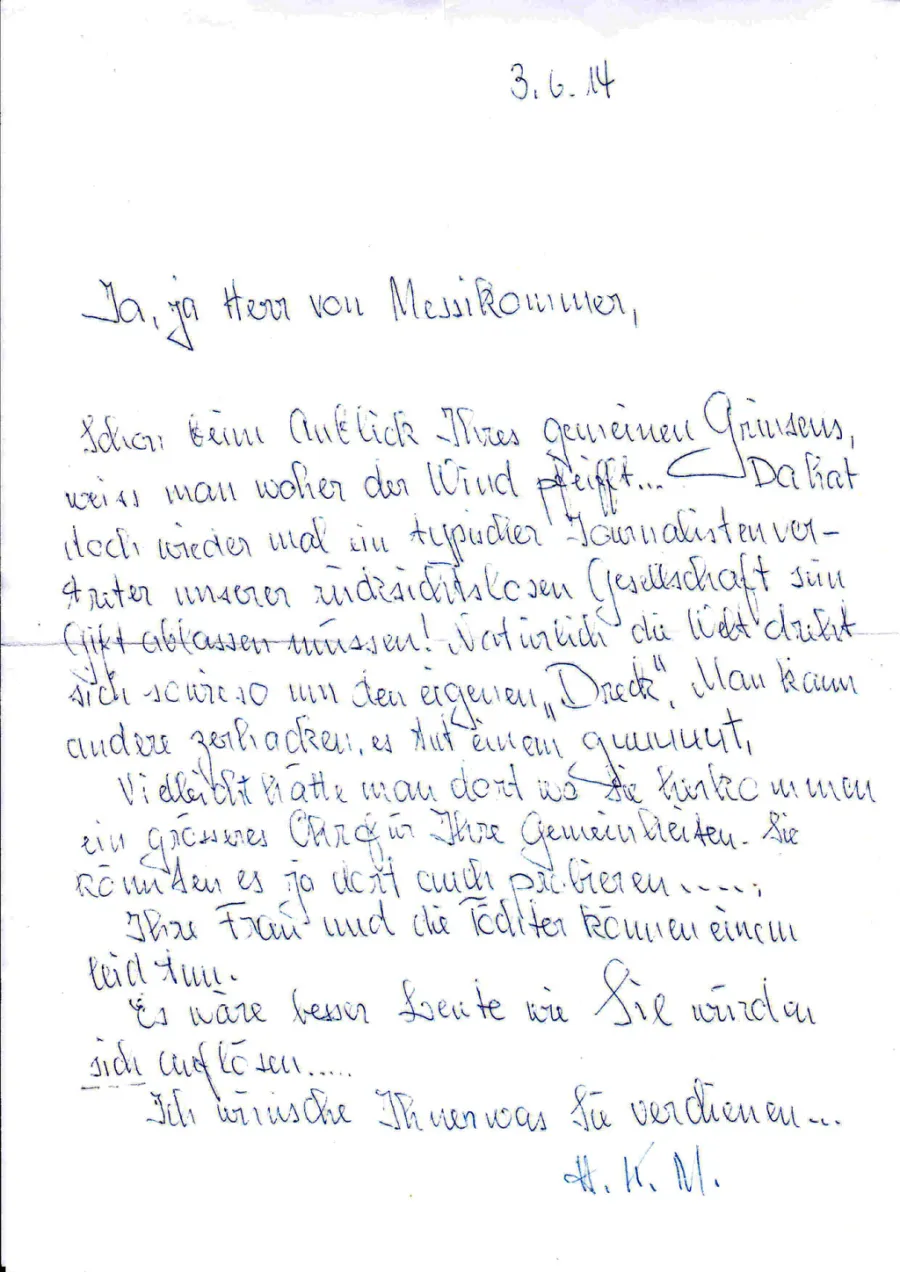 3.6.14
Ja, ja Herr von Messikommer,
Schon beim Anblick Ihres gemeinen Grinsens,
weiss man woher der Wind pfeifft... Da hat
doch wieder mal ein typischer Journalistenver-
treter unserer rücksichtslosen Gesellschaft sein
Gift ablassen müssen! Natürlich die Welt dreht
sich sowieso um den eigenen „Dreck". Man kann
andere zerhacken, es tut einem
Vielleicht hätte man dort wo Sie herkommen
ein grösseres Ohr für Ihre Gemeinheiten. Sie
könnten es ja dort auch probieren.....
Ihre Frau und die Töchter können einem
leid tun.
Es wäre besser Leute wie Sie würden
sich auflösen.....
Ich wünsche Ihnen was Sie verdienen...
H. K. M.